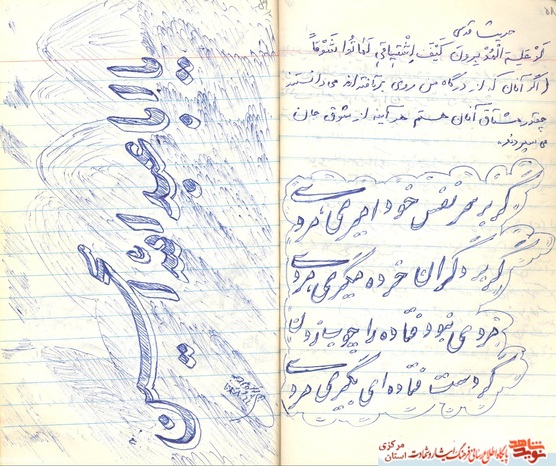 حدیث قدسی
لَوْ عَلِمَ الْمُدْبِرونَ کَیْفَ اِشْتیاقی لَماتُوا شَوْقاً
اگر آنان که از درگاه من روی برتافته‌اند می دانستند
چقدر مشتاق آنان هستم هر آینه از شوق جان
می سپردند.
گر بر سر نفس خود امیری مردی
گر بر دگران خرده نگیری مردی
مردی نبود فتاده را پای زدن
گر دست فتاده ای بگیری مردی
یا ابا عبدالله
نوید شاهد
پایگاه اطلاع رسانی فرهنگ ایثار و شهادت
استان مرکزی